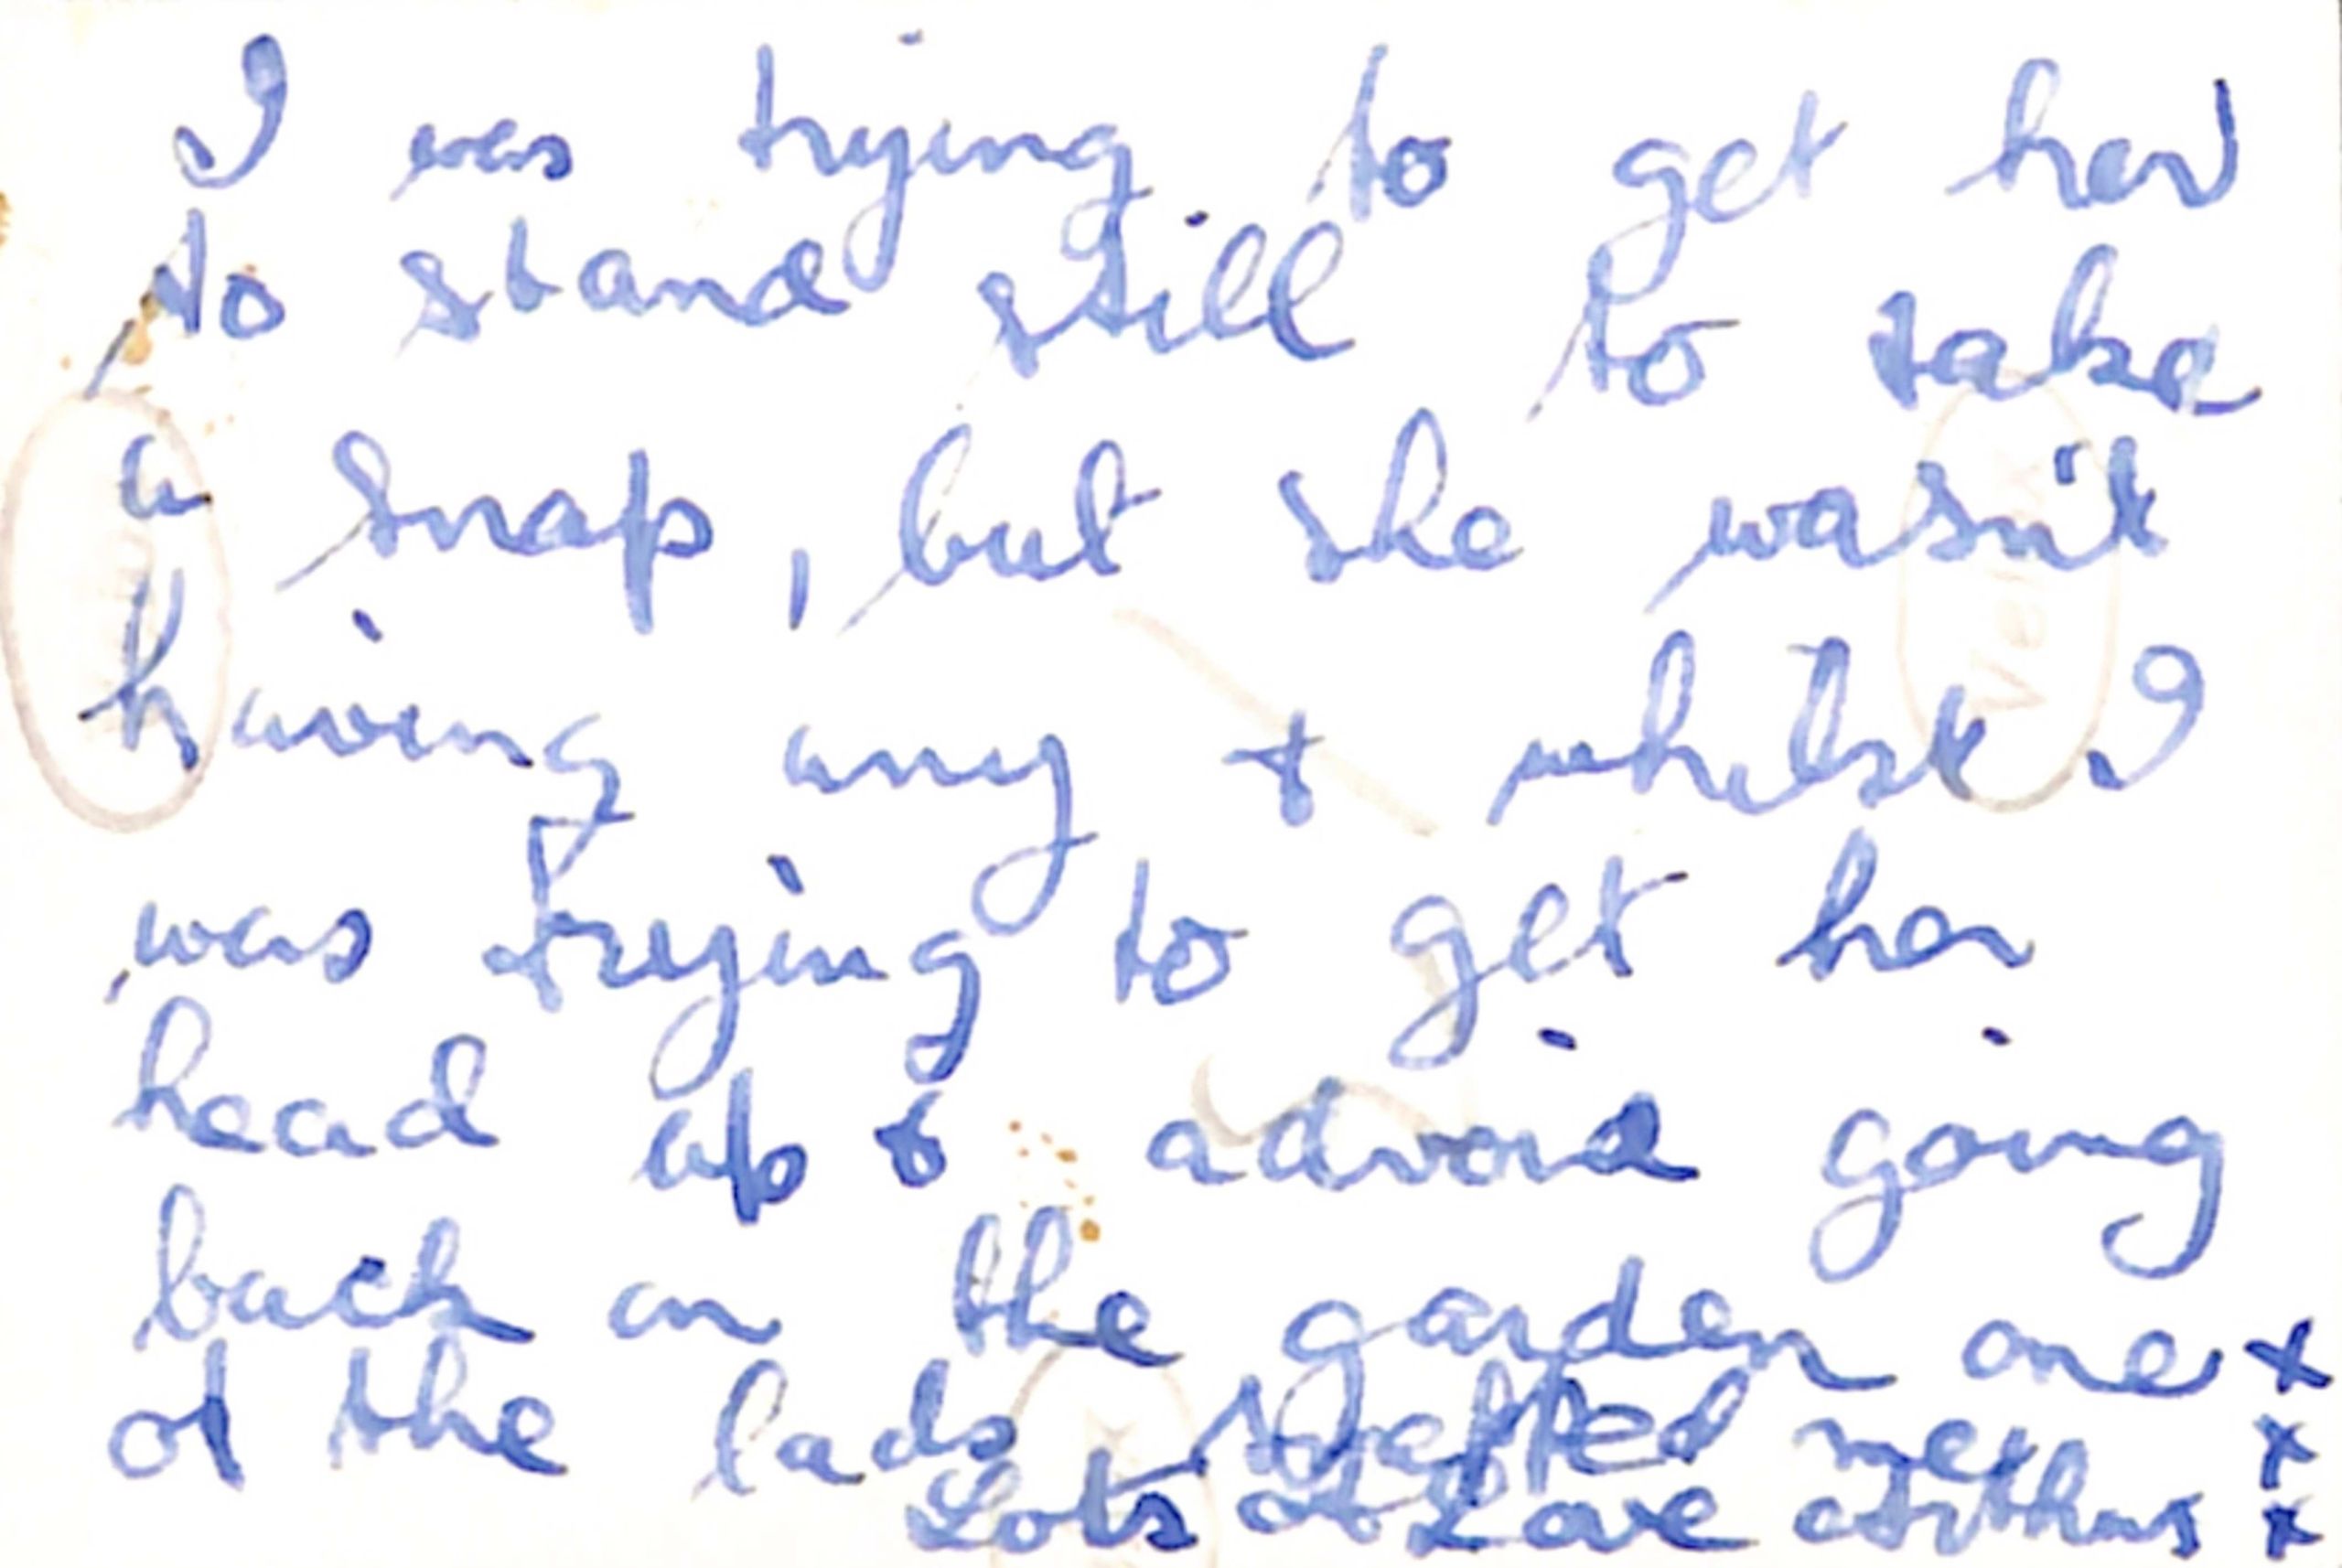 I was trying to get her
to stand still to take
a snap, but she wasn't
having any & whilst I
was trying to get her
head up & advoid going
back on the garden one x
of the lads snapped me x
Lots of Love Arthur x